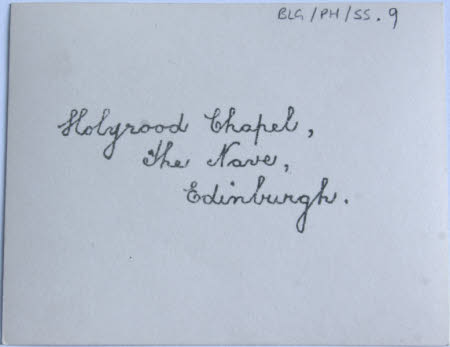 BLG/PH/SS.9
Holyrood Chapel,
The Nave,
Edinburgh.